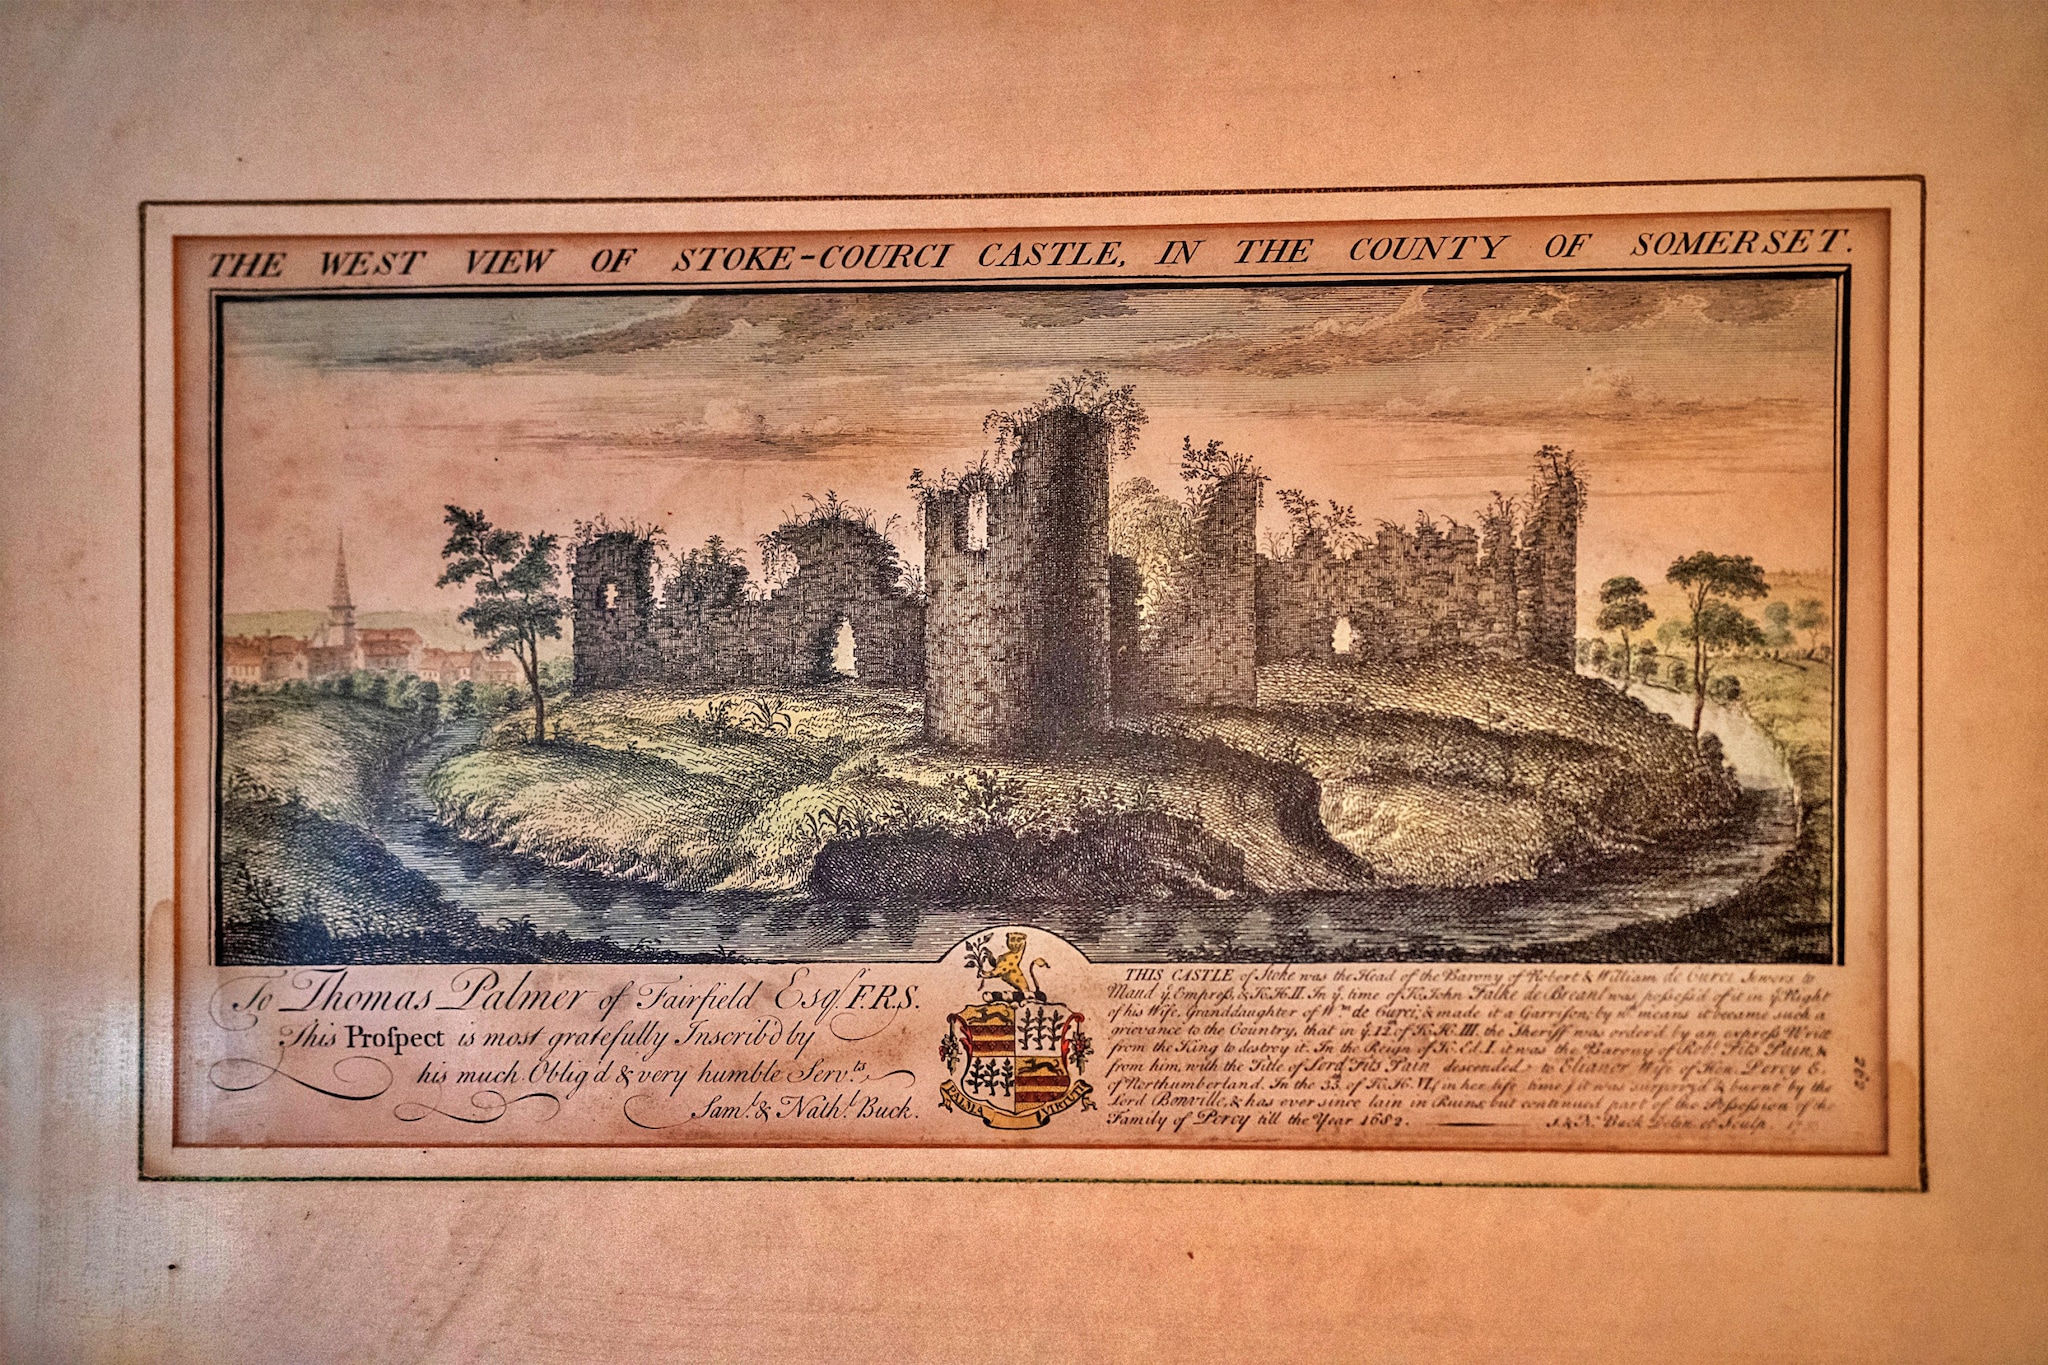 THE WEST VIEW OF STOKE-COURCI CASTLE, IN THE COUNTY OF SOMERSET.
To Thomas Palmer of Fairfield Esqr. F.R.S.
This Proſpect is most gratefully Inscrib'd by
his much Oblig'd & very humble Servts.
Saml. & Nathl. Buck.
PALMA VIRTUTI
THIS CASTLE of Stoke was the Head of the Barony of Robert & William de Curci Sewers to
Maud ye. Empreſs, & K. H. II. In ye. time of K. John Falke de Breant was poſseſs'd of it in ye. Right
of his Wife, Granddaughter of Wm. de Curci; & made it a Garriſon; by wch. means it became such a
grievance to the Country, that in ye. 12. of K. H. III. the Sheriff was order'd by an expreſs Writt
from the King to destroy it. In the Reign of K. Ed. I. it was the Barony of Robt. Fits Pain, &
from him, with the Title of Lord Fits Pain descended to Eleanor Wife of Hen. Percy E.
of Northumberland. In the 33d. of K. H. VI. (in her life time) it was surpryz'd & burnt by the
Lord Bonville, & has ever since lain in Ruins; but continued part of the Poſseſsion of the
Family of Percy till the Year 1682. S. & N. Buck Delin. et Sculp.
262